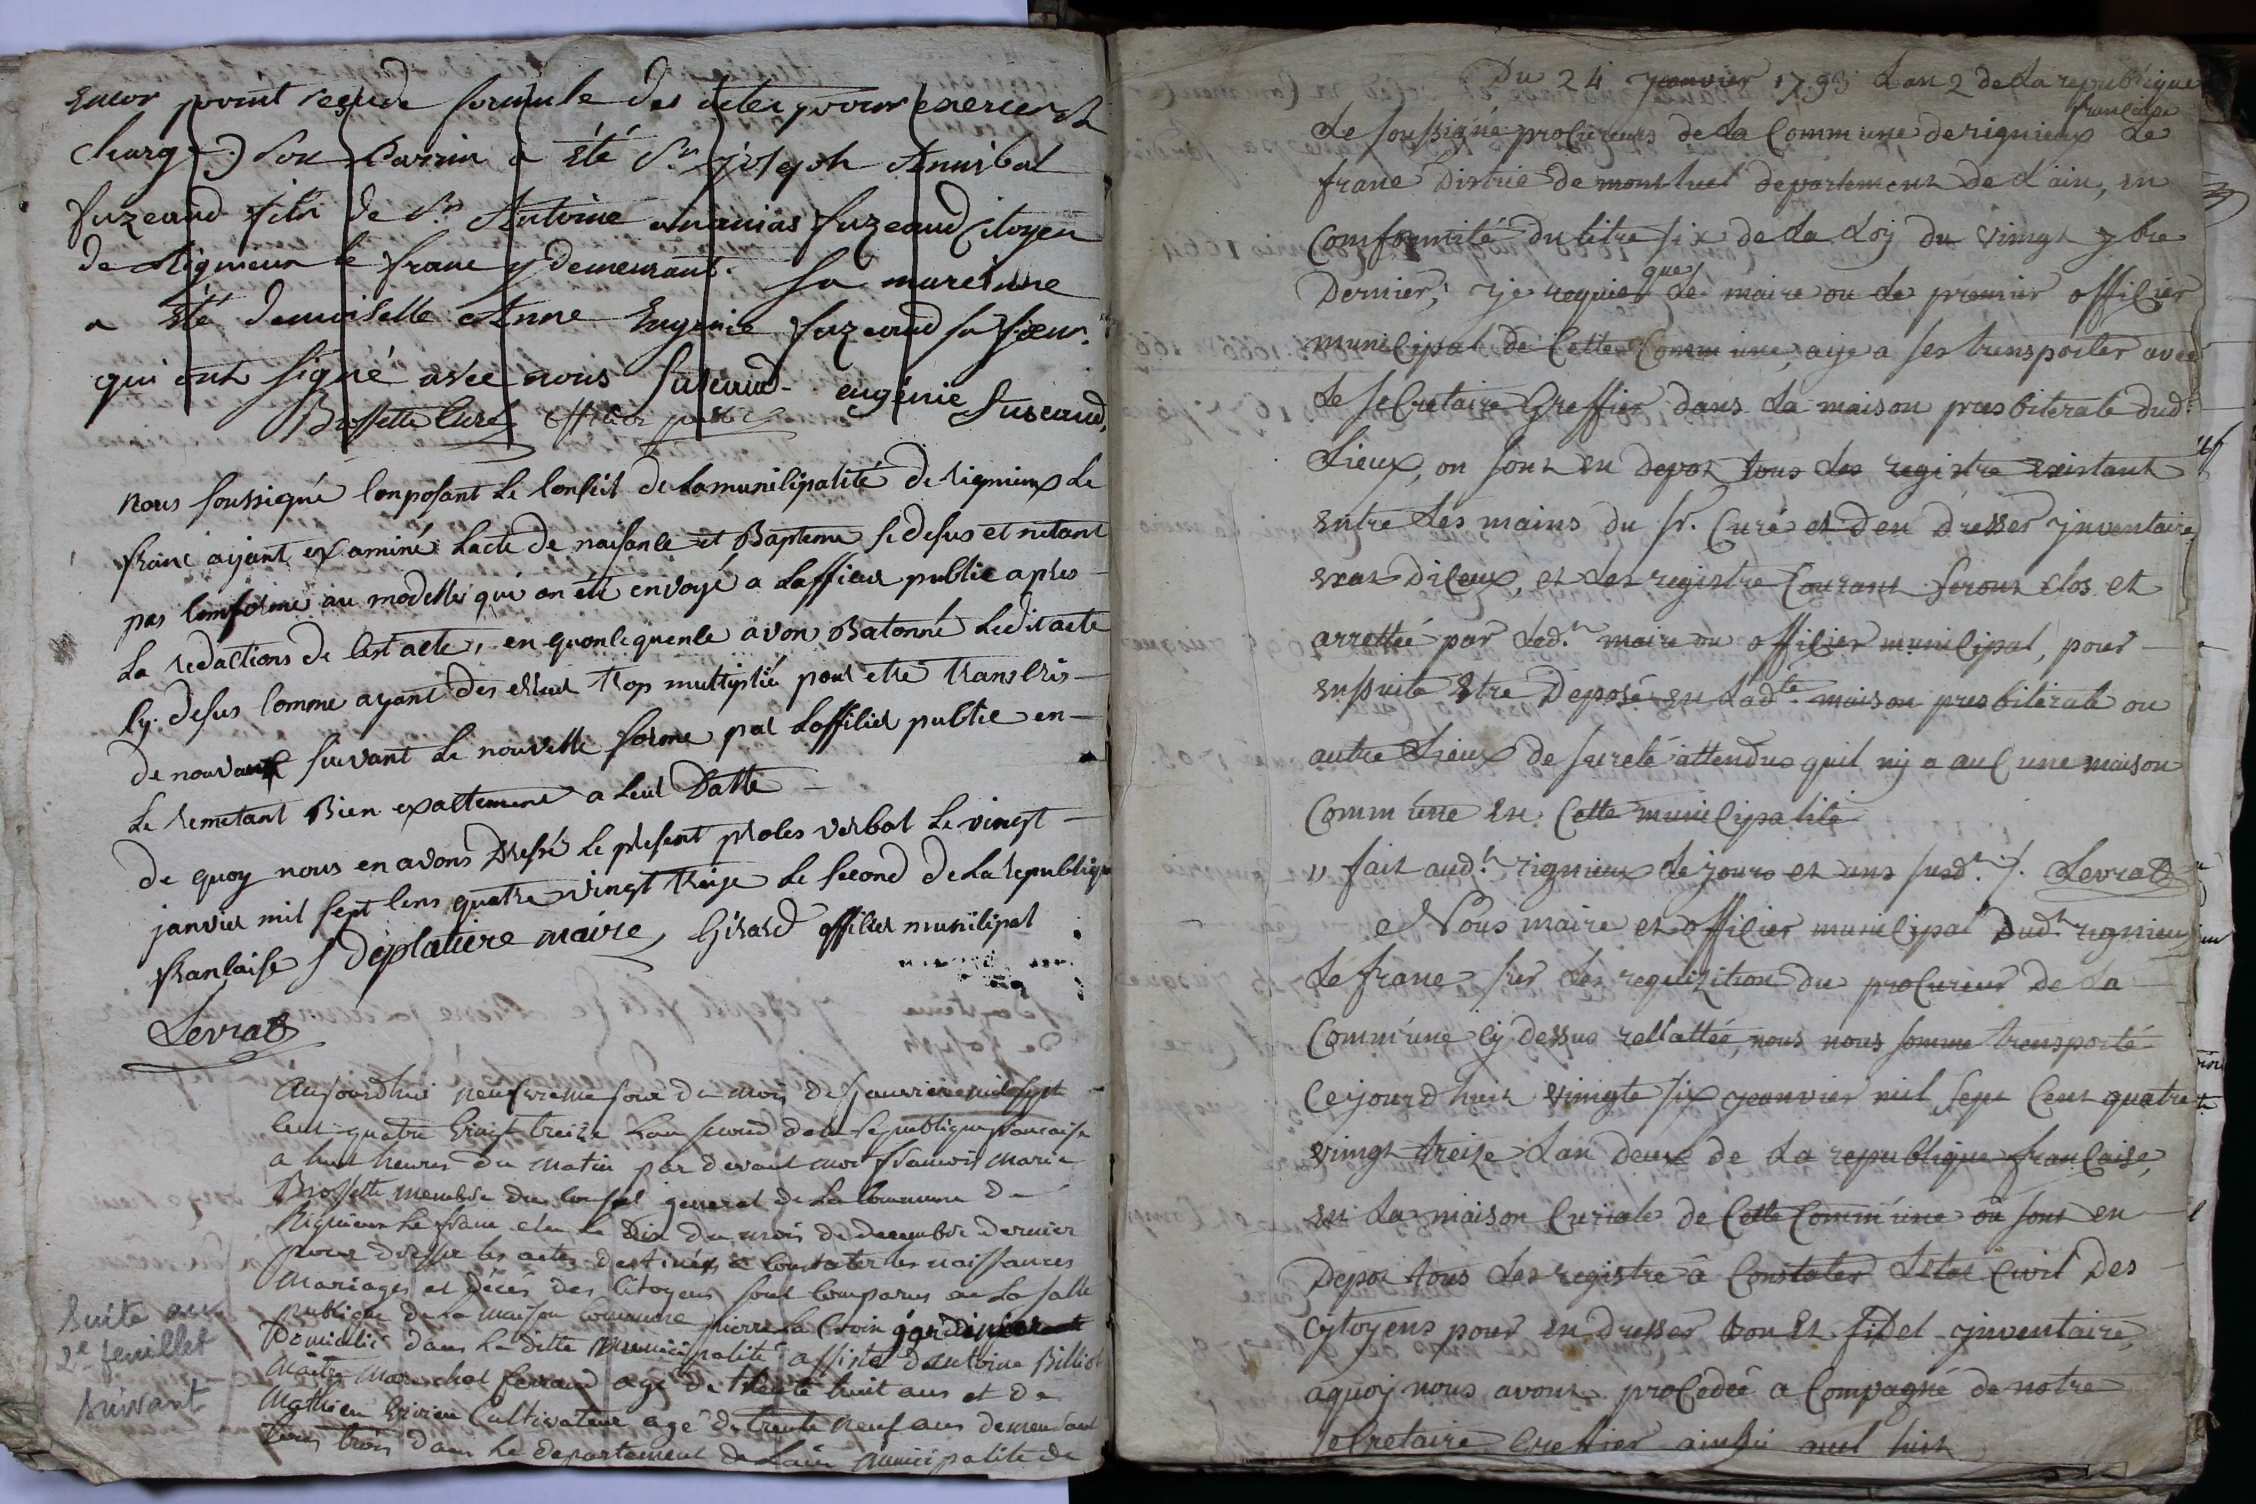 Encor point reçu de formule des actes pour exercer la
charge) Son Parrin a été Sr. joseph Annibal
fuzeaud fils de Sr. Antoine ananias fuzeaud Citoyen
de Rigneux le franc y demeurant. Sa mareinne
a été demoiselle Anne Eugenie fuzeaud sa sœur.
qui ont signé avec nous fuseaud eugénie fuseaud
Brossette Curé officier public
nous soussigné Conposant Le Conseil de La municipalité de Rignieux Le
franc ayant examiné Lacte de naisance et Bapteme Si desus et netant
pas Conforme au modelles qui on été envoyé a Lofficier public apres
La redactions de Cest acte, en quonsequence avon Batonné Ledit acte
Cy. desus Comme ayant des erreur trop multiplié pour etre transcris
de nouvaux suivant Le nouvelle forme par Lofficier public en
Le remetant Bien exactement a Leur Datte
de quoy nous en avons Dressé Le present proces verbal Le vingt
janvier mil sept Cens quatre vingt treize Le second de La republique
francaise Deplatiere maire, Girard officier municipal
Levrat
Aujourdhui neufvieme jour du mois de Janvier mil sept
Cent quatre vingt treize Lan second de la republique francaise
a huit heures du matin par devant moi francois Marie
Brossette membre du Conseil general de La Commune de
Rignieux Le franc elu Le Dix du mois de decembre dernier
pour dresser les actes destinés a Constater les naissances
Mariages et décés des Citoyens sont Comparus en La salle
publique de la maison commune pierre La Croix
Domicilié dans La ditte Municipalité assisté dantoine Billiot
Maitre Marechal ferrand agé de trente huit ans et de
Mathieu Cultivateur agé de trente neuf ans demeurant
tous trois dans Le departement de Lain Municipalité de
Suite au
2e feuillet
suivant
Du 24 janvier 1793 Lan 2 de La republique
francaise
Le soussigné procureurs de La Commune de rignieux Le
franc District de montluel departement de L'ain, en
Comformité du titre six de La Loy du vingt 7bre
Dernier, je requier que Le maire ou Le premier officier
municipal de Cette Commune, aye a ses transporter avec
Le secretaire Greffier dans La maison presbiterale dud.t
Lieux, ou sont en depot tous Les registre existant
entre Les mains du sr. Curé et d'en dresser jnventaire
exat diceux, et Les registre Courant seront clos et
arrettéé par Led.t maire ou officier municipal, pour
ensuite Etre Deposé en Lad.te maison presbiterale ou
autre Lieux de sureté attendus quil ny a auCune maison
Commune en Cette municipalité
" fait aud.t rignieux Le jours et ans susd.t /. Levrat
Nous maire et officier municipal Dud.t rignieux
Le franc sur Les requizition du procureur de La
Commune Cy dessus rellattéé, nous nous somme transporté
Cejourdhuit vingte six janvier mil sept Cent quatre
vingt treize Lan deux de La republique française,
en La maison Curiale de Cette Commune où sont en
Depot tous Les registre à Constater Letat Civil Des
Cytoyens pour en dresser bon Et fidel jnventaire,
aquoy nous avons procedéé a Compagné de notre
secretaire Greffier ainsi quil suit